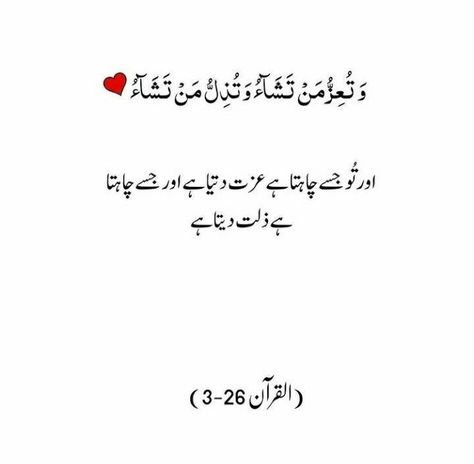 وَ تُعِزُّ مَنْ تَشَآءُ وَ تُذِلُّ مَنْ تَشَآءُ
اور تُو جسے چاہتا ہے عزت دیتا ہے اور جسے چاہتا
ہے ذلت دیتا ہے
(القرآن 26-3)